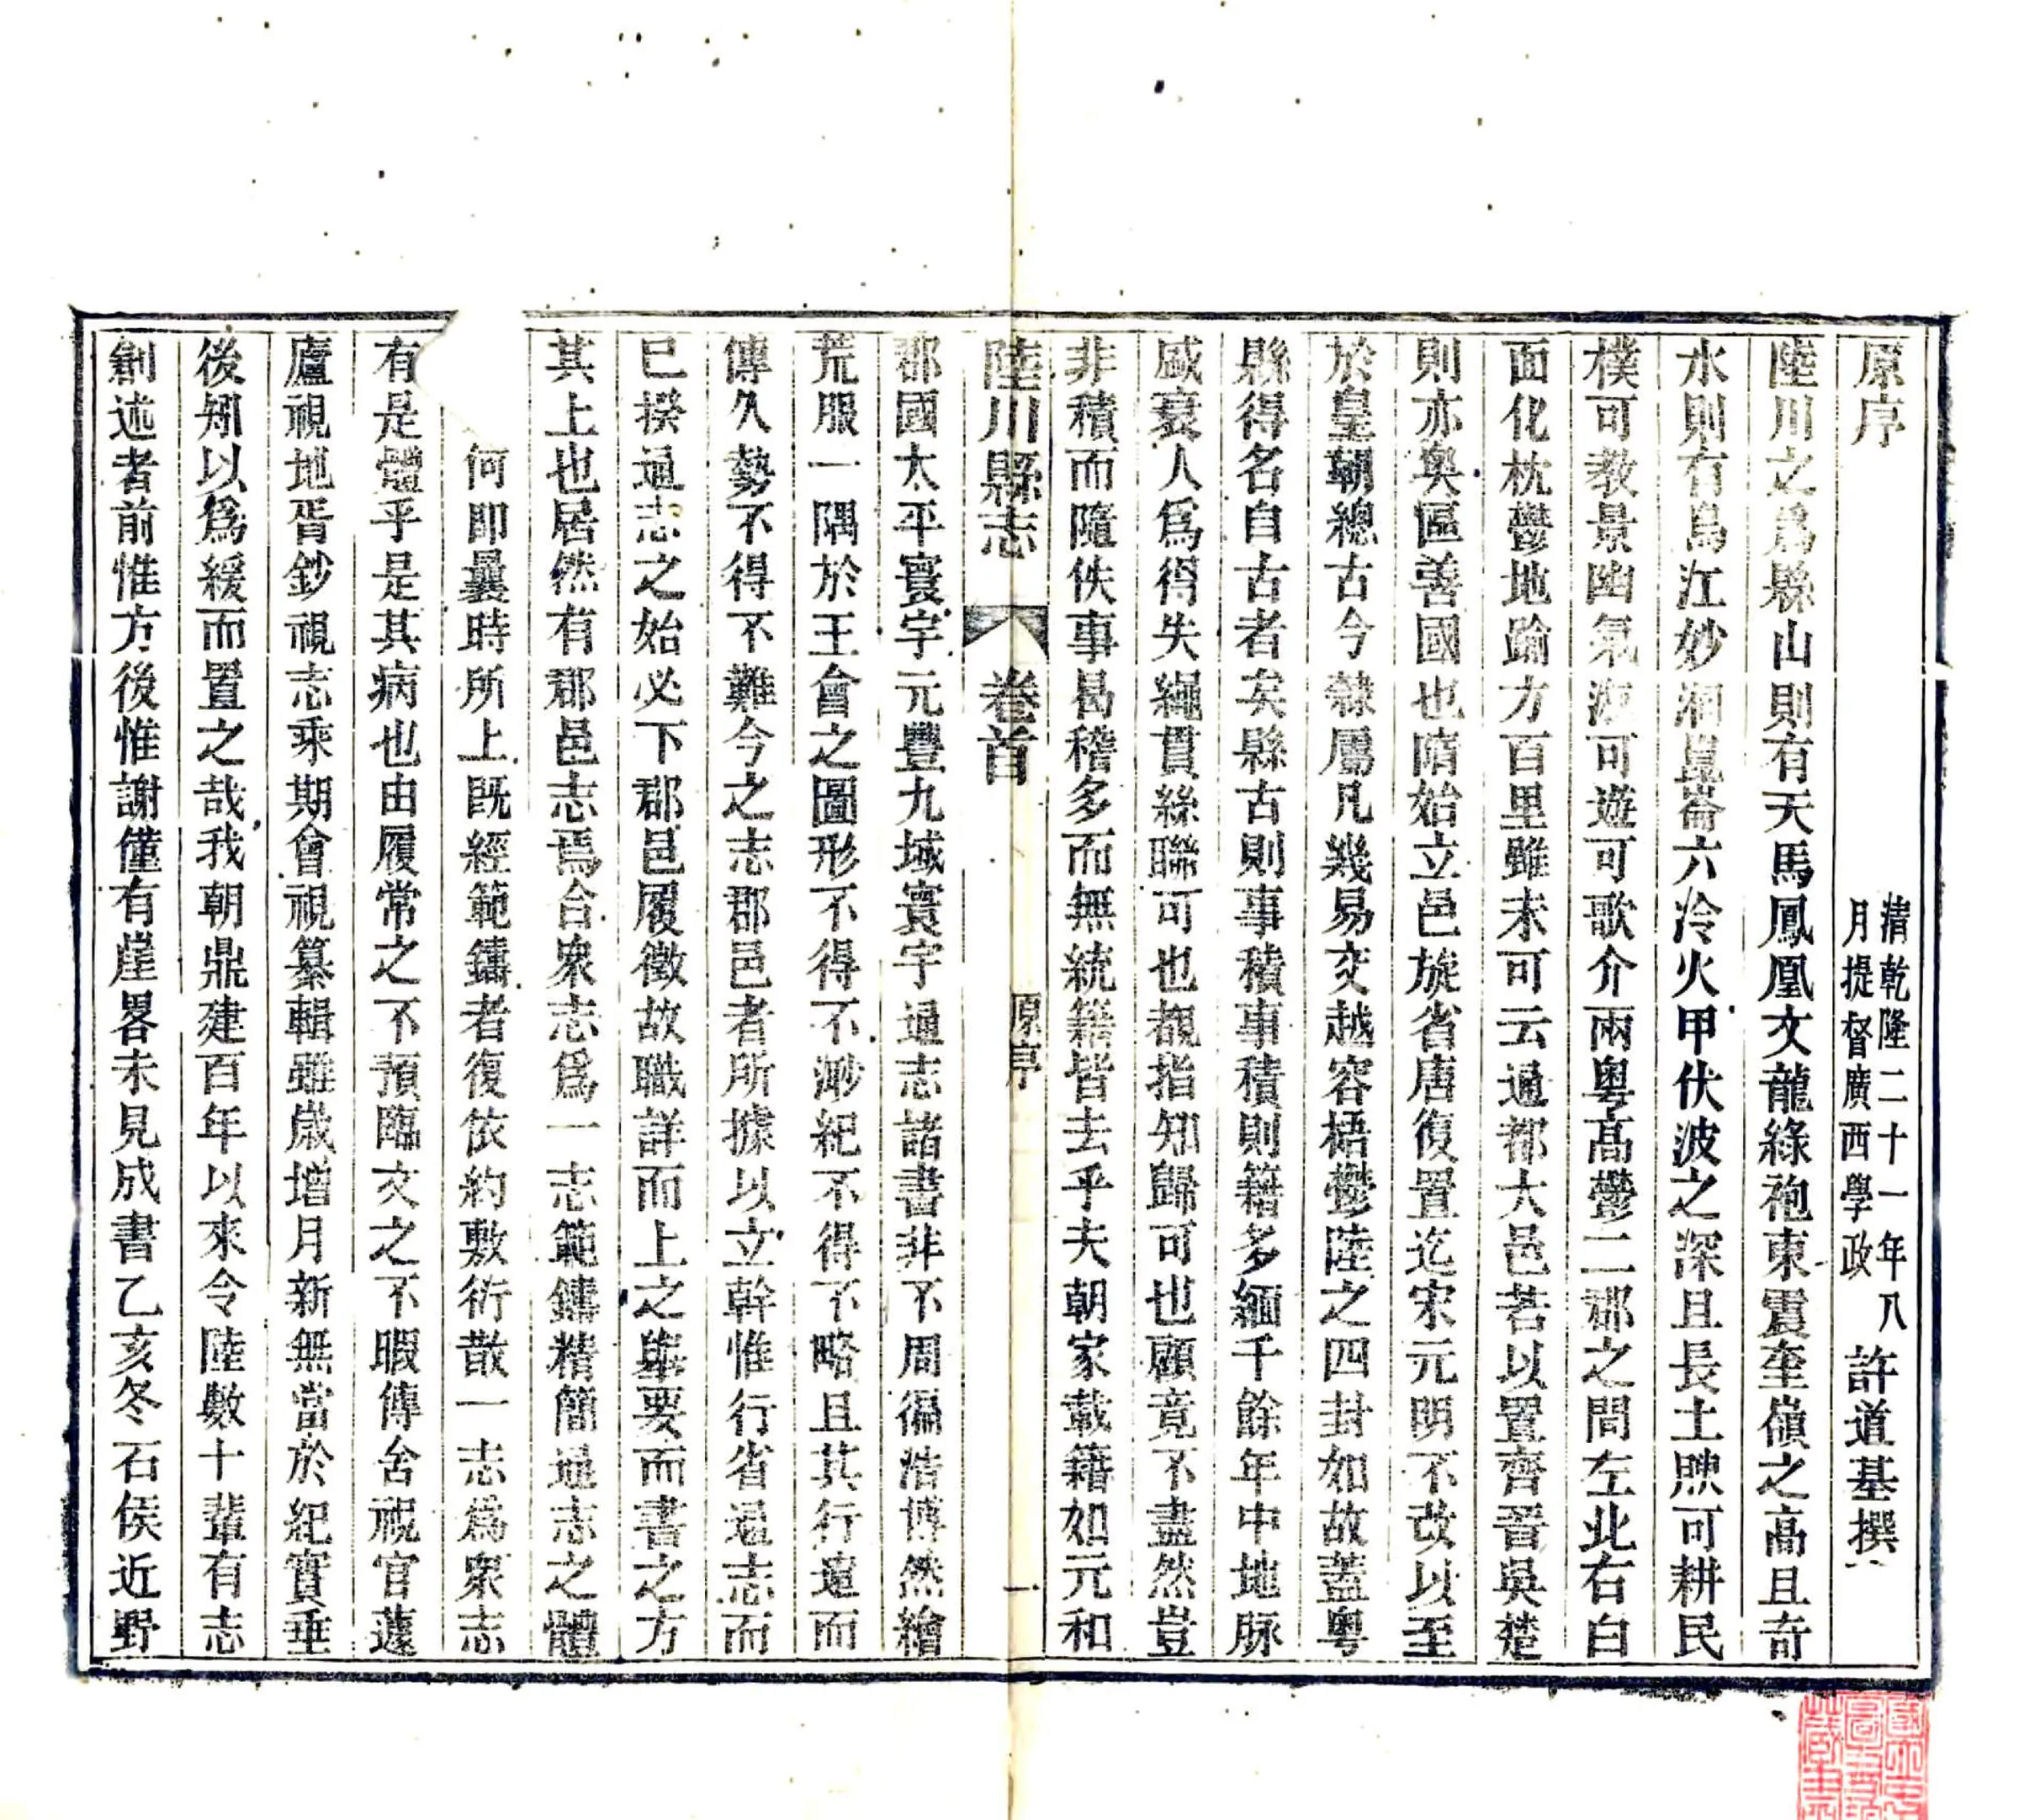 原序
清乾隆二十一年八
月提督廣西學政
許道基撰
陸川之爲縣山則有天馬鳳凰文龍綠袍東震奎嶺之高且奇
水則有烏江妙洞崑崙六泠火甲伏波之深且長土腴可耕民
樸可教景幽氣淑可遊可歌介兩粵高鬱二郡之間左北右白
面化枕鬱地踰方百里雖未可云通都大邑若以置齊晉吳楚
則亦奧區善國也隋始立邑旋省唐復置迄宋元明不改以至
於皇朝總古今隸屬凡幾易交越容梧鬱陸之四封如故蓋粵
縣得名自古者矣縣古則事積事積則籍多緬千餘年中地脉
盛衰人爲得失繩貫絲聯可也覩指知歸可也顧竟不盡然豈
非積而隨佚事曷稽多而無統籍皆去乎夫朝家載籍如元和
陸川縣志
卷首
原序
一
郡國太平寰宇元豐九域寰宇通志諸書非不周徧浩博然繪
荒服一隅於王會之圖形不得不渺紀不得不略且其行遠而
傳久勢不得不難今之志郡邑者所據以立幹惟行省通志而
已揆通志之始必下郡邑履徵故職詳而上之舉要而書之方
其上也居然有郡邑志焉合衆志爲一志範鑄精簡通志之體
何即曩時所上既經範鑄者復依約敷衍散一志爲衆志
有是體乎是其病也由履常之不預臨文之不暇傳舍視官蘧
廬視地胥鈔視志乘期會視纂輯雖歲增月新無當於紀實垂
後矧以爲緩而置之哉我朝鼎建百年以來令陸數十輩有志
創述者前惟方後惟謝僅有崖畧未見成書乙亥冬石侯近野